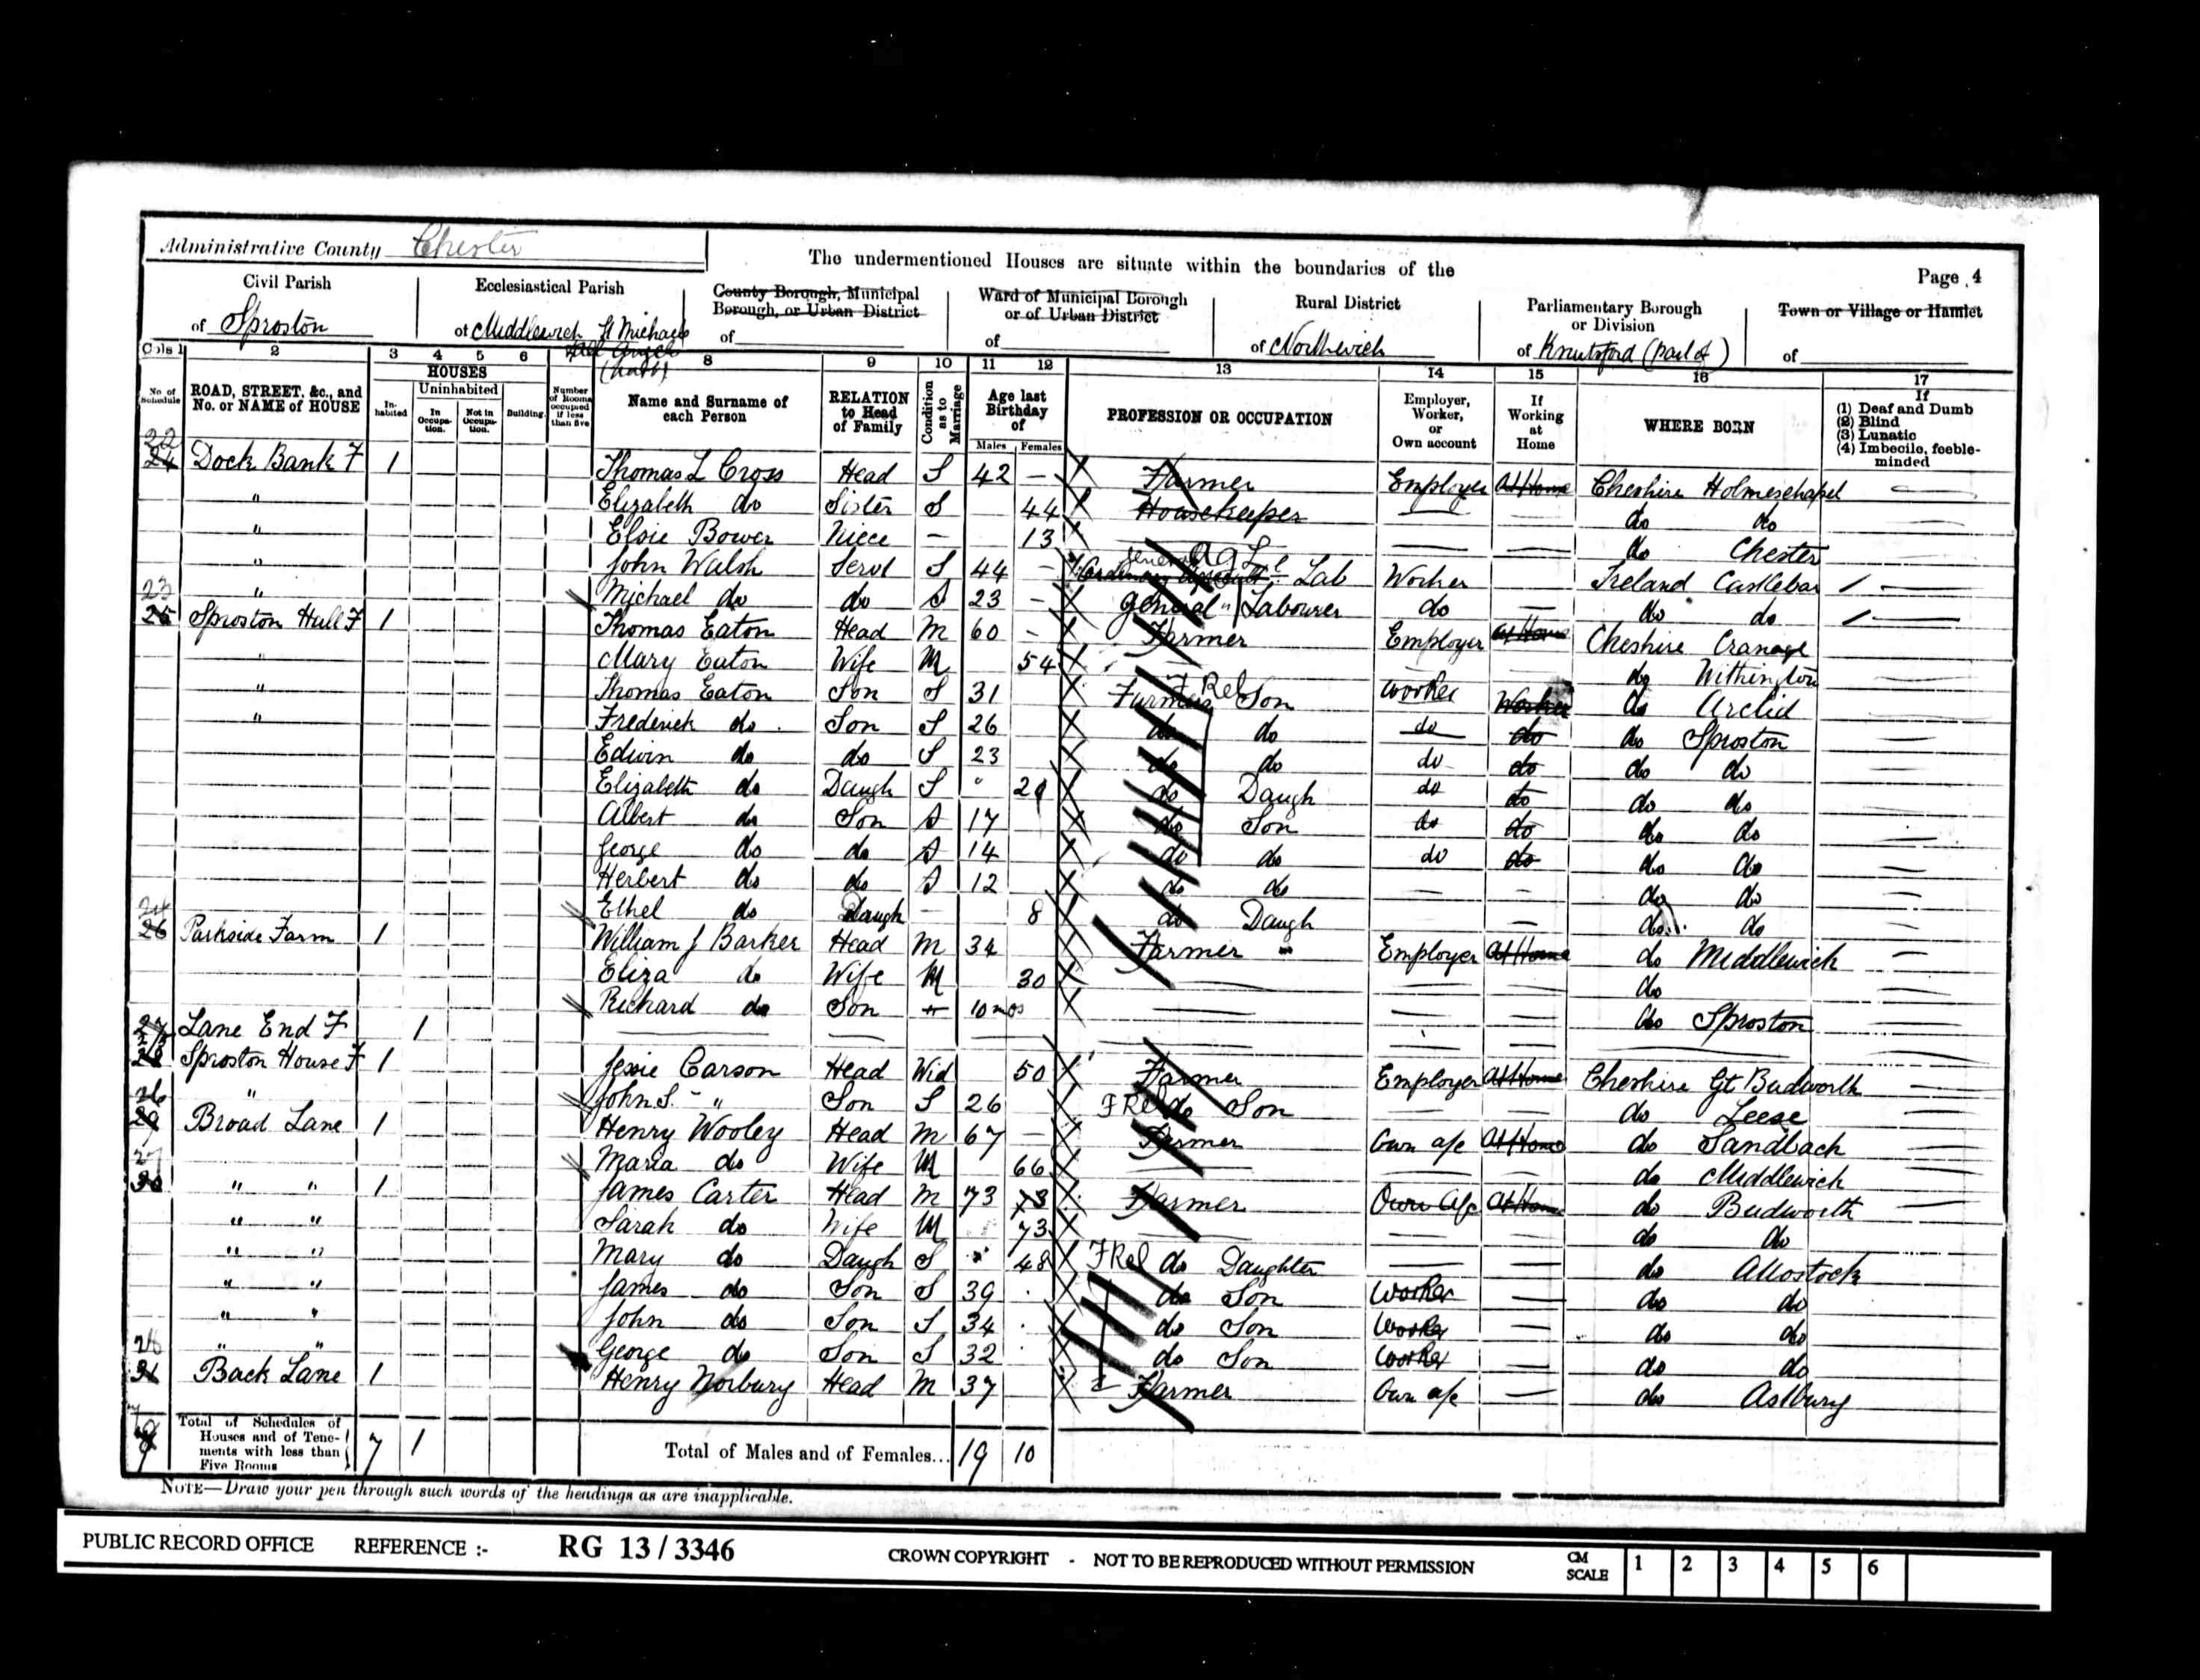 Administrative County Chester
The undermentioned Houses are situate within the boundaries of the
Page 4
Civil Parish of Sproston
Ecclesiastical Parish of Middlewich St Michael
County Borough, Municipal Borough, or Urban District of
Ward of Municipal Borough or of Urban District of
Rural District of Northwich
Parliamentary Borough or Division of Knutsford (part of)
Town or Village or Hamlet of
Cols 1 2 3 4 5 6 8 9 10 11 12 13 14 15 16 17
No. of Schedule
ROAD, STREET, &c., and No. or NAME of HOUSE
HOUSES
In-habited
Uninhabited
In Occupa-tion.
Not in Occupa-tion.
Building.
Number of Rooms occupied if less than five
Name and Surname of each Person
RELATION to Head of Family
Condition as to Marriage
Age last Birthday of
Males Females
PROFESSION OR OCCUPATION
Employer, Worker, or Own account
If Working at Home
WHERE BORN
If
(1) Deaf and Dumb
(2) Blind
(3) Lunatic
(4) Imbecile, feeble-minded
22 24 Dock Bank F 1 Thomas L Cross Head S 42 – Farmer Employer At Home Cheshire Holmeschapel
" Elizabeth do Sister S 44 Housekeeper — do do
" Elsie Bower Niece – 13 — — do Chester
" John Walsh Servt S 44 – Ag Lab Worker Ireland Castlebar
" Michael do do S 23 – General " Labourer do — do do
23 25 Sproston Hall F 1 Thomas Eaton Head M 60 – Farmer Employer At Home Cheshire Cranage
" Mary Eaton Wife M 54 do Withington
" Thomas Eaton Son S 31 Farmers F Rel Son Worker Worker do Arclid
" Frederick do Son S 26 do do do do do Sproston
Edwin do do S 23 do do do do do do
Elizabeth do Daugh S " do Daugh do do do do
Albert do Son S 17 do Son do do do do
George do do S 14 do do do do do do
Herbert do do S 12 do do — – do do
Ethel do Daugh – 8 do Daugh – do do
24 26 Parkside Farm 1 William J Barker Head M 34 Farmer Employer At Home do Middlewich
Eliza do Wife M 30 — — do
Richard do Son 10 mos — — do Sproston
27 Lane End F 1
Sproston House F 1 Jessie Carson Head Wid 50 Farmer Employer At Home Cheshire Gt Budworth
" John S. " Son S 26 F Rel do Son — — do Leese
26 29 Broad Lane 1 Henry Wooley Head M 67 – Farmer Own a/c At Home do Sandbach
Maria do Wife M 66 — — do Middlewich
27 30 " " 1 James Carter Head M 73 73 Farmer Own a/c At Home do Budworth
" " Sarah do Wife M 73 — — do do
" " Mary do Daugh S 48 F Rel do Daughter — — do Allostock
" " James do Son S 39 do Son Worker — do do
" " John do Son S 34 do Son Worker — do do
" " George do Son S 32 do Son Worker — do do
28 31 Back Lane 1 Henry Norbury Head M 37 Farmer Own a/c — do Astbury
Total of Schedules of Houses and of Tene-ments with less than Five Rooms 7 1
Total of Males and of Females... 19 10
NOTE—Draw your pen through such words of the headings as are inapplicable.
PUBLIC RECORD OFFICE REFERENCE :- RG 13 / 3346
CROWN COPYRIGHT - NOT TO BE REPRODUCED WITHOUT PERMISSION
CM SCALE 1 2 3 4 5 6